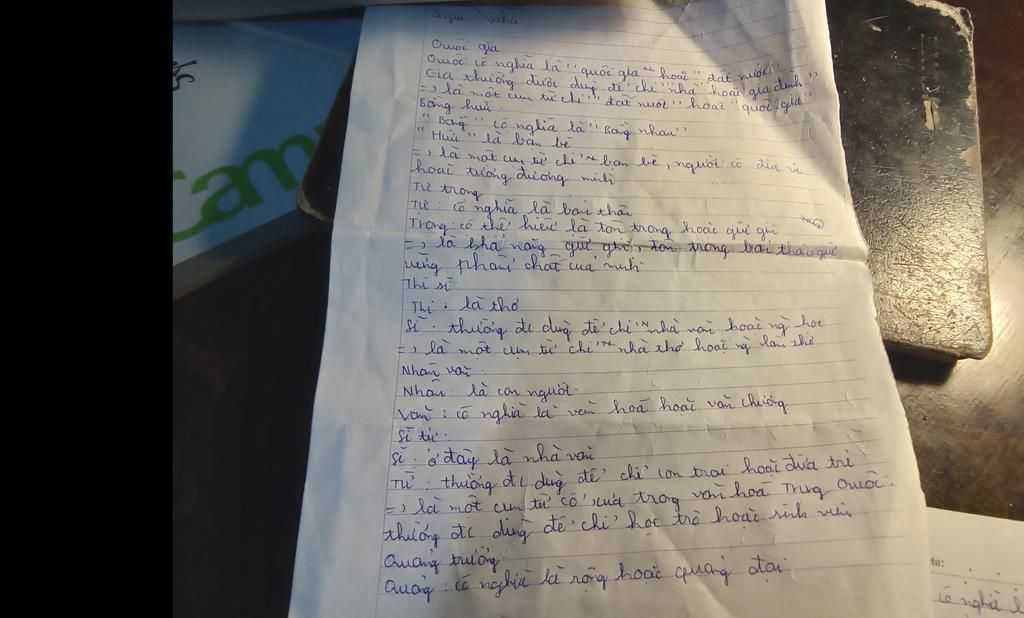 gia : nhà
Quốc gia
Quốc có nghĩa là "quốc gia" hoặc "đất nước"
Gia thường được dùng để chỉ "nhà" hoặc gia đình"
=> là một cụm từ chỉ "đất nước" hoặc "quốc gia"
Bằng hữu
"Bằng" có nghĩa là "Bằng nhau"
"Hữu" là bạn bè
=> là một cụm từ chỉ "bạn bè, người có địa vị
hoặc tương đương mình
Tự trọng
Tự : có nghĩa là bản thân
Trọng : có thể hiểu là tôn trọng hoặc giữ gìn
=> là khả năng giữ gìn, tôn trọng bản thân, giữ
vững phẩm chất của mình
Thi sĩ
Thi : là thơ
Sĩ : thường đc dùng để chỉ "nhà văn hoặc ng học
=> là một cụm từ chỉ "nhà thơ hoặc ng làm thơ
Nhân văn :
Nhân : là con người.
Văn : có nghĩa là văn hoá hoặc văn chương
Sĩ tử :
Sĩ : ở đây là nhà văn
Tử : thường đc dùng để chỉ con trai hoặc đứa trẻ
=> là một cụm từ cổ xưa trong văn hoá Trung Quốc.
thường đc dùng để chỉ học trò hoặc sinh viên
Quảng trường :
Quảng : có nghĩa là rộng hoặc quảng đại
Cam
te:
có nghĩa l